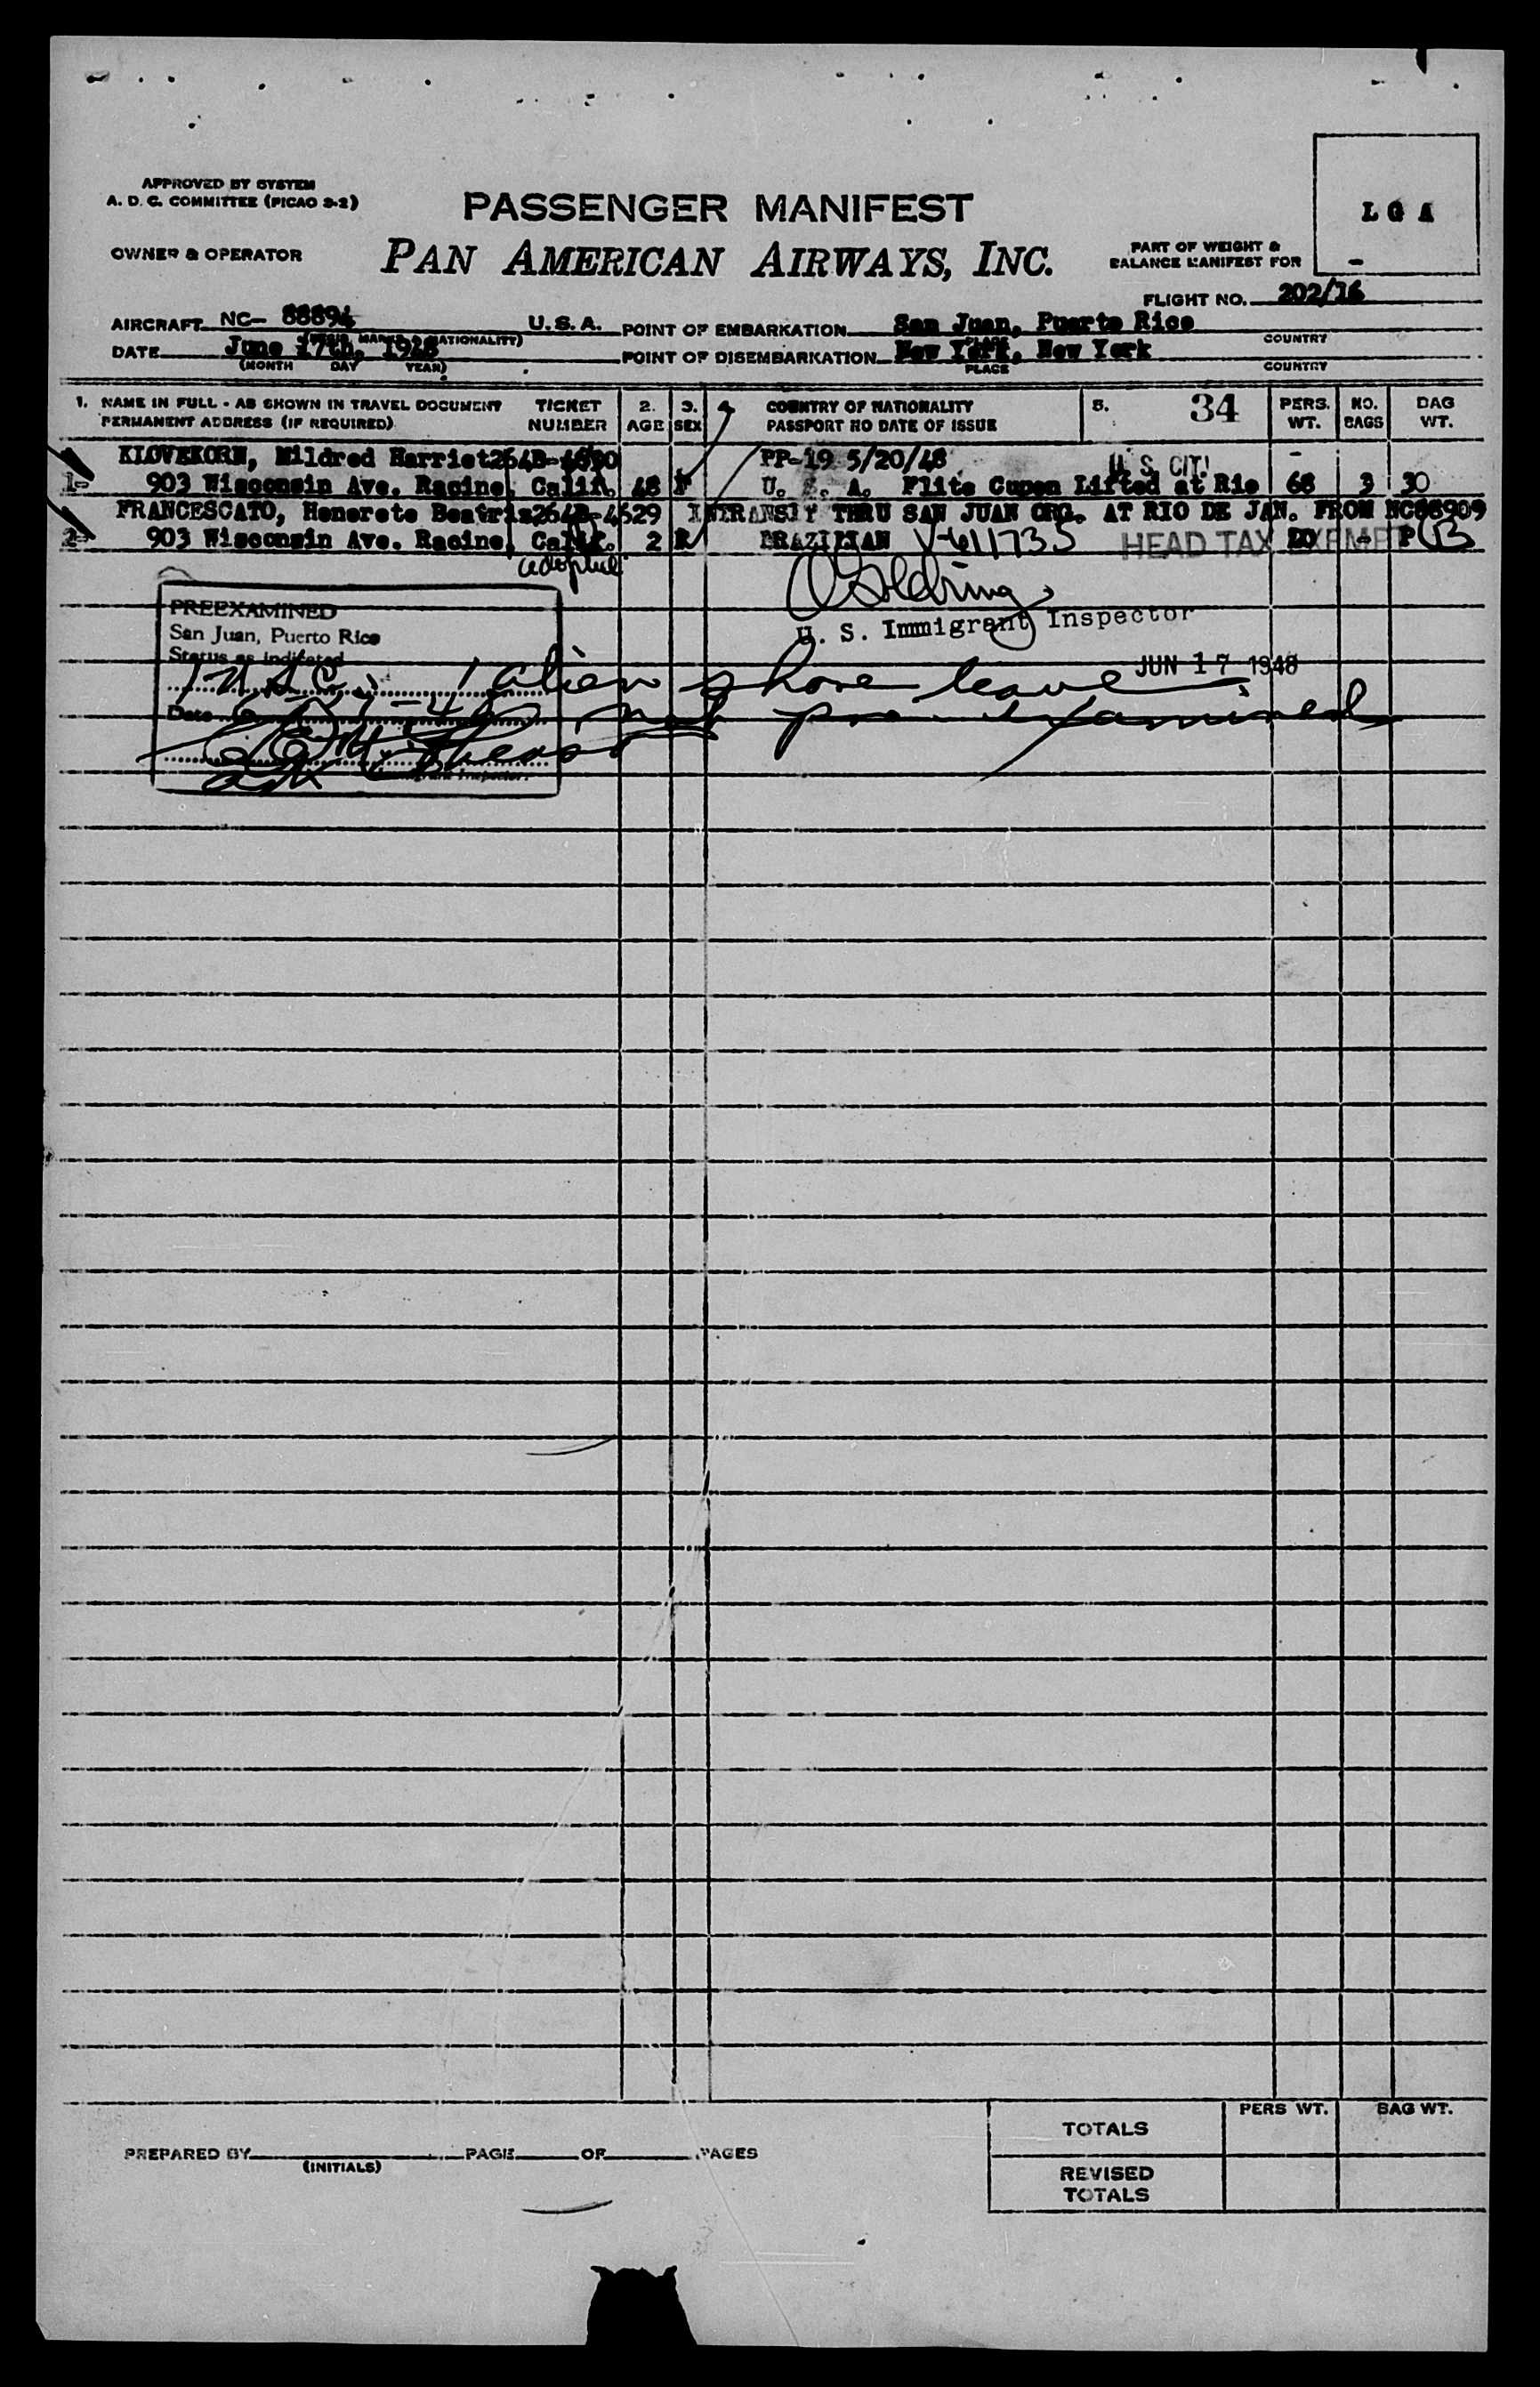 APPROVED BY SYSTEM
A. D. C. COMMITTEE (PICAO 9-2)
PASSENGER MANIFEST
LGA
OWNER & OPERATOR
PAN AMERICAN AIRWAYS, INC.
PART OF WEIGHT &
BALANCE MANIFEST FOR
-
FLIGHT NO. 202/16
AIRCRAFT NC- 88894 U.S.A. POINT OF EMBARKATION San Juan, Puerto Rico
NATIONALITY) PLACE COUNTRY
DATE June 17th, 1948 POINT OF DISEMBARKATION New York, New York
(MONTH DAY YEAR) PLACE COUNTRY
1. NAME IN FULL - AS SHOWN IN TRAVEL DOCUMENT TICKET 2. 3. 4. COUNTRY OF NATIONALITY 5. 34 PERS. NO. BAG
PERMANENT ADDRESS (IF REQUIRED) NUMBER AGE SEX PASSPORT NO DATE OF ISSUE WT. BAGS WT.
KLOVEKORN, Mildred Harriet 264B- PP-19 5/20/48 U. S. CIT. -
1- 903 Wisconsin Ave. Racine, Calif. 48 F U. S. A. Flite Cupon Lifted at Rio 68 3 30
FRANCESCATO, Henorete Beatriz 264B-4629 INTRANSIT THRU SAN JUAN ORG. AT RIO DE JAN. FROM NC88909
2- 903 Wisconsin Ave. Racine, Calif. 2 BRAZILIAN V-611735 HEAD TAX EXEMP 20 - P B
adoptive
PREEXAMINED
San Juan, Puerto Rico
Status as indicated
U. S. Immigrant Inspector
JUN 17 1948
1 U.S.C. 1 alien shore leave
Date not pre-examined
Immigrant Inspector.
TOTALS PERS WT. BAG WT.
PREPARED BY PAGE OF PAGES
(INITIALS)
REVISED
TOTALS